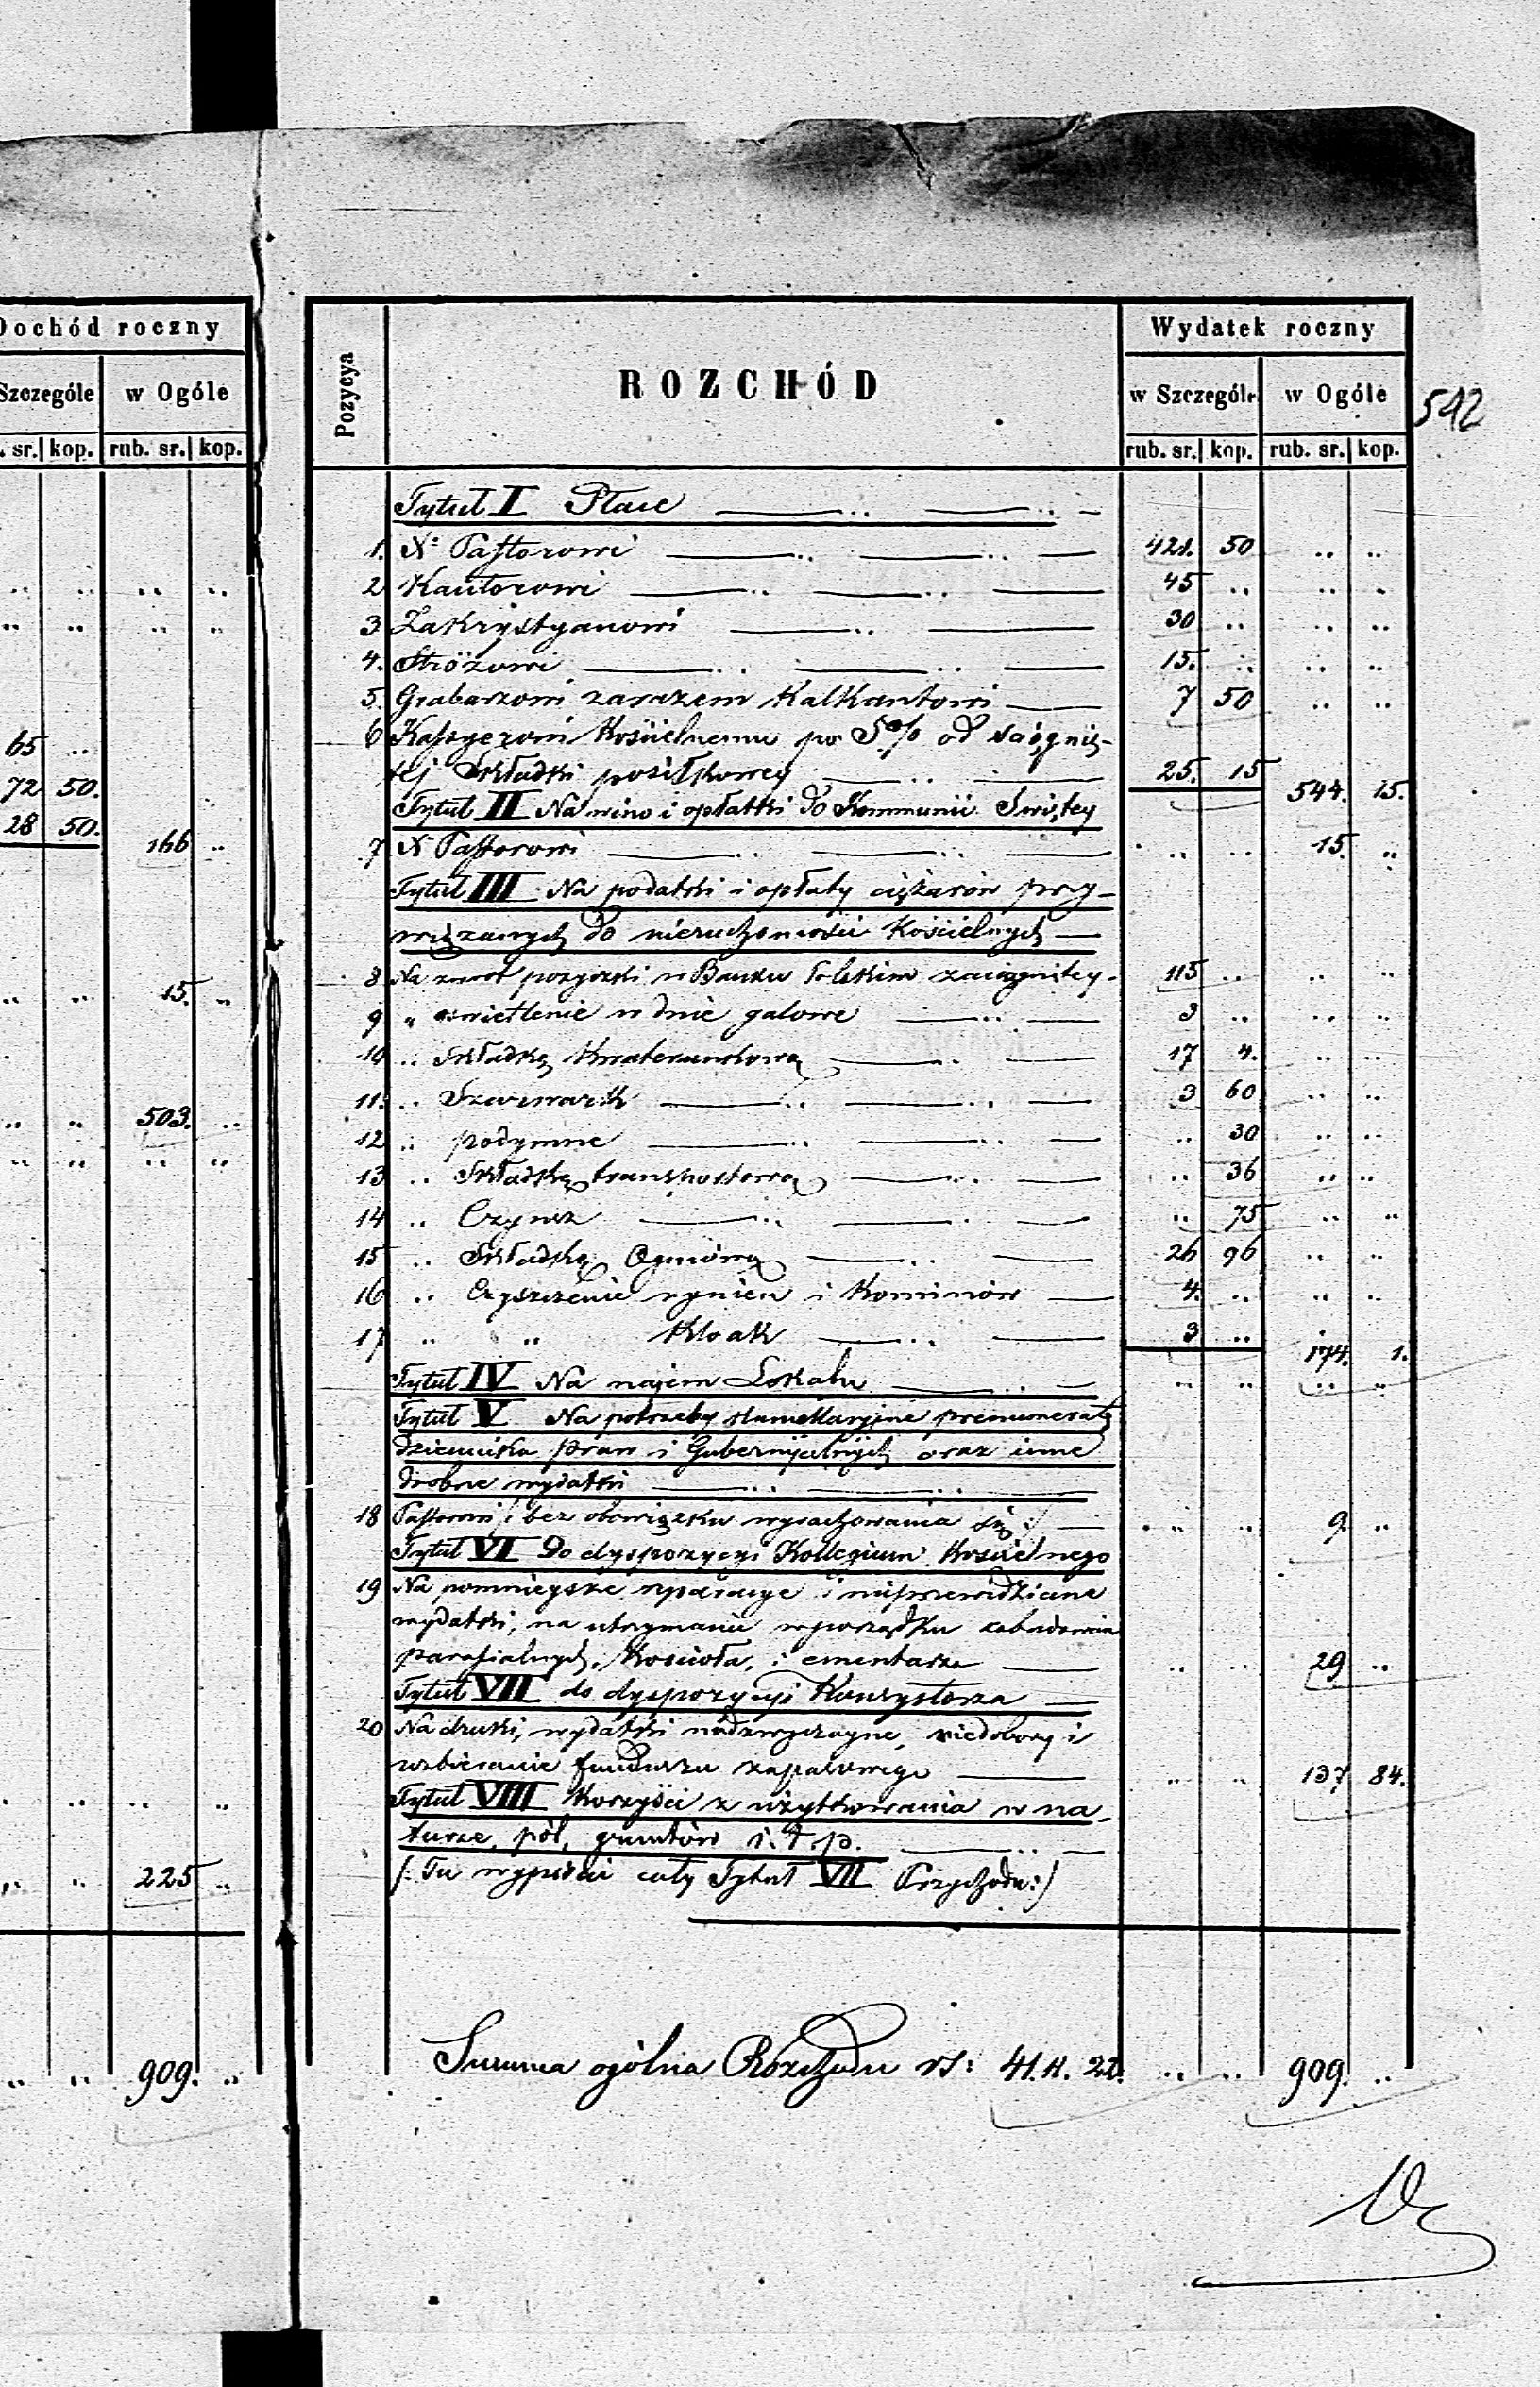 Dochód roczny
Szczególe w Ogóle
. sr. kop. rub. sr. kop.
65 ..
72 50.
28 50. 166 ..
.. .. 15. ..
.. .. 503. ..
.. .. 225 ..
.. .. 909. ..
542
Pozycya ROZCHÓD Wydatek roczny
w Szczególe w Ogóle
rub. sr. kop. rub. sr. kop.
Tytuł I Płace
1. X. Pastorowi 421. 50 .. ..
2 Kantorowi 45 .. .. ..
3 Zakrystyanowi 30 .. .. ..
4. Stróżowi 15. .. .. ..
5. Grabarzowi zarazem Kalkantowi 7 50 .. ..
6 Kassyerowi Kościelnemu po 5% od ściągnię-
tej Składki posiłkowey 25. 15 544. 15.
Tytuł II Na wino i opłatki do Kommunii Świętey
7 X Pastorowi .. .. 15. ..
Tytuł III Na podatki i opłaty ciężarów przy-
wiązanych do nieruchomości Kościelnych
8 Na zwrot pożyczki w Banku Polskim zaciągniętey 115 .. .. ..
9 " oświetlenie w dnie galowe 3 .. .. ..
10 .. Składkę Kwaterunkową 17 4. .. ..
11. .. Szarwark 3 60 .. ..
12 .. podymne .. 30 .. ..
13 .. Składkę transportową .. 36 .. ..
14 .. Czynsz .. 75 .. ..
15 .. Składkę Ogniową 26 96 .. ..
16 .. Czyszczenie rynien i Kominów 4. .. .. ..
17 .. .. Kloak 3 .. 174. 1.
Tytuł IV Na najem Lokalu .. .. .. ..
Tytuł V Na potrzeby prenumeratę
dziennika praw i Gubernijalnych oraz inne
drobne wydatki
18 Pastorowi /: bez obowiązku wyrachowania się :/ .. .. 9. ..
Tytuł VI Do dyspozycyi Kollegium Kościelnego
19 Na pomnieysze reparacye i nieprzewidziane
wydatki, na utrzymanie w porządku zabudowań
parafialnych, Kościoła, i cmentarza .. .. 29 ..
Tytuł VII do dyspozycyi Konsystorza
20 Na druki, wydatki nadzwyczayne, niedobory i
uzbieranie funduszu zapasowego .. .. 137 84.
Tytuł VIII Korzyści z użytkowania w na-
turze, pól, gruntów i. t. p.
/: Tu wypisać cały Tytuł VII Przychodu :/
Summa ogólna Rozchodu rs: .. .. 909. ..